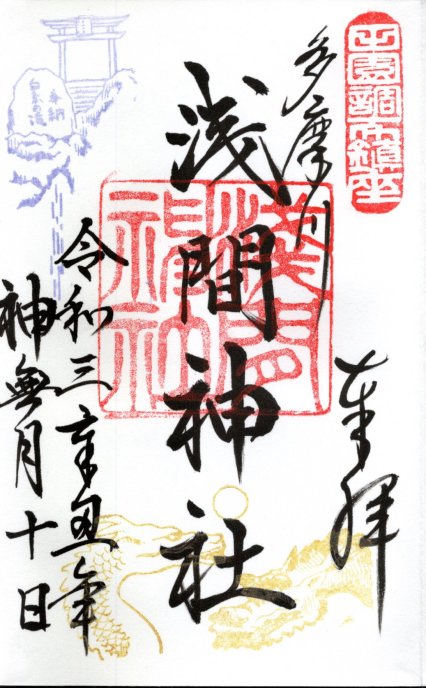 田園調布鎮座
奉拝
多摩川
浅間神社
淺間
神社
令和三辛丑年
神無月十日